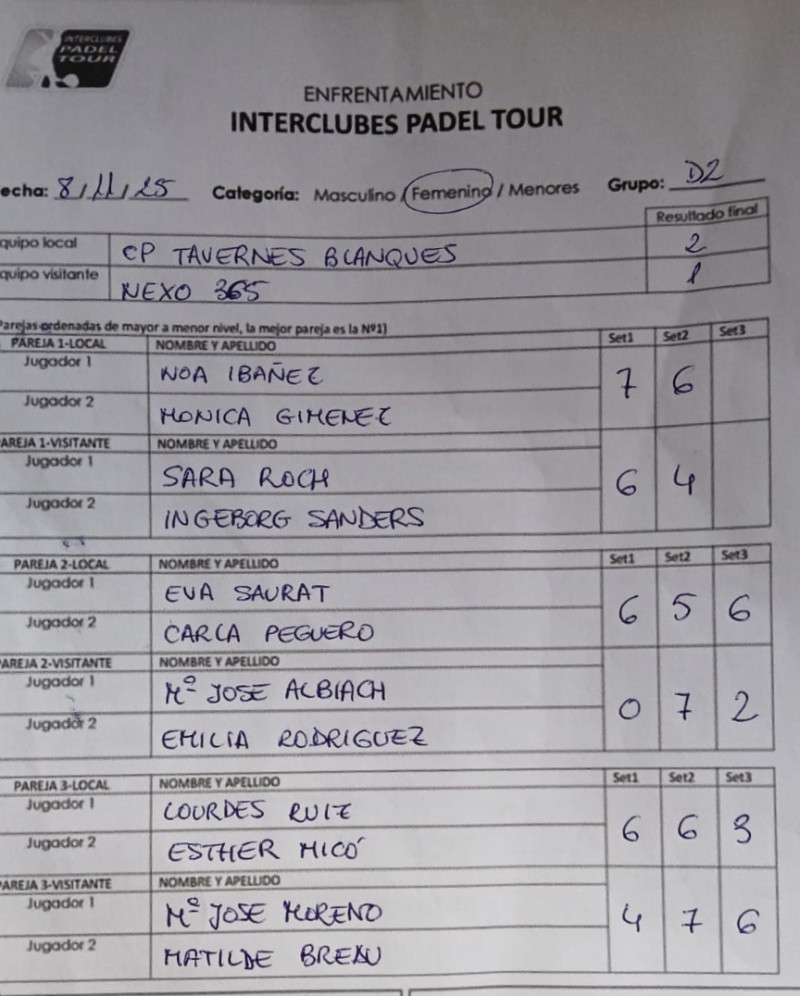 INTERCLUBES
PADEL
TOUR
ENFRENTAMIENTO
INTERCLUBES PADEL TOUR
echa: 8/11/25 Categoría: Masculino / Femenino / Menores Grupo: D2
Resultado final
quipo local CP TAVERNES BLANQUES 2
quipo visitante NEXO 365 1
Parejas ordenadas de mayor a menor nivel, la mejor pareja es la Nº1)
PAREJA 1-LOCAL NOMBRE Y APELLIDO Set1 Set2 Set3
Jugador 1 NOA IBAÑEZ 7 6
Jugador 2 MONICA GIMENEZ
AREJA 1-VISITANTE NOMBRE Y APELLIDO
Jugador 1 SARA ROCH 6 4
Jugador 2 INGEBORG SANDERS
PAREJA 2-LOCAL NOMBRE Y APELLIDO Set1 Set2 Set3
Jugador 1 EVA SAURAT 6 5 6
Jugador 2 CARLA PEGUERO
AREJA 2-VISITANTE NOMBRE Y APELLIDO
Jugador 1 Mª JOSE ALBIACH 0 7 2
Jugador 2 EMILIA RODRIGUEZ
PAREJA 3-LOCAL NOMBRE Y APELLIDO Set1 Set2 Set3
Jugador 1 LOURDES RUIZ 6 6 3
Jugador 2 ESTHER MICÓ
AREJA 3-VISITANTE NOMBRE Y APELLIDO
Jugador 1 Mª JOSE MORENO 4 7 6
Jugador 2 MATILDE